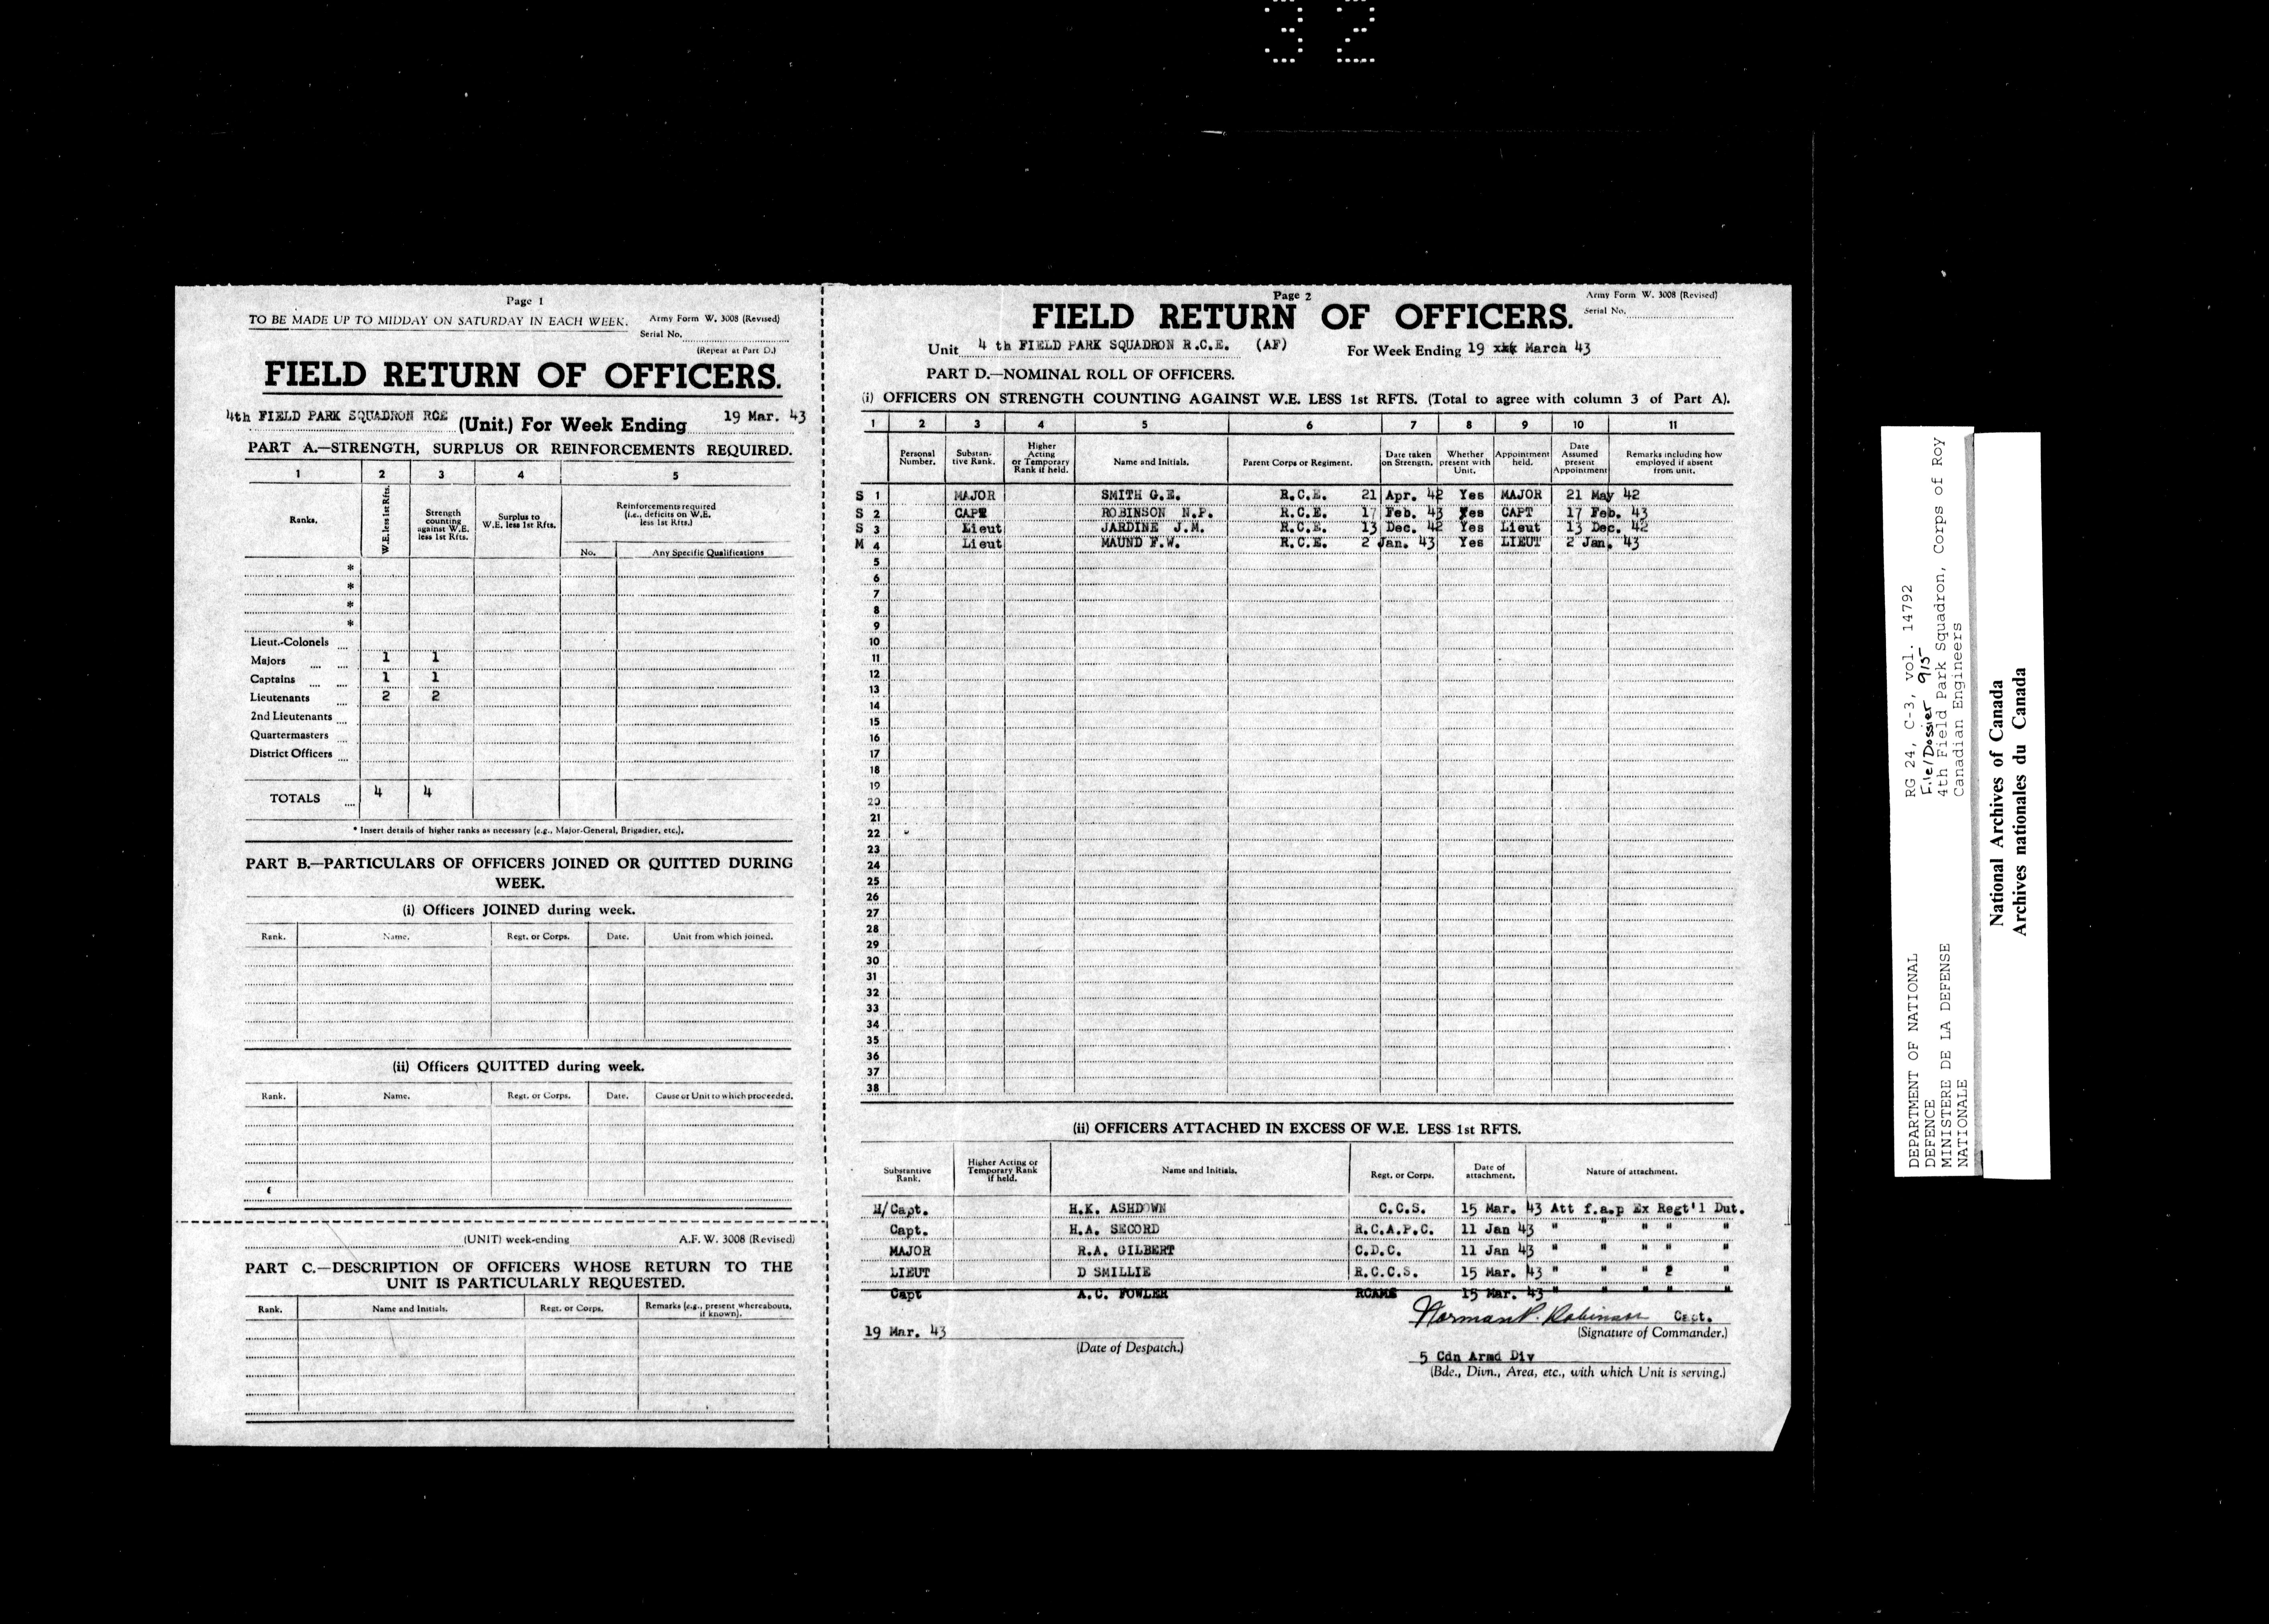 32
Page 1
TO BE MADE UP TO MIDDAY ON SATURDAY IN EACH WEEK.
Army Form W. 3008 (Revised)
Serial No.
(Repeat at Part D.)
FIELD RETURN OF OFFICERS.
4th FIELD PARK SQUADRON RCE (Unit.) For Week Ending 19 Mar. 43
PART A.—STRENGTH, SURPLUS OR REINFORCEMENTS REQUIRED.
1 2 3 4 5
Ranks.
W.E. less 1st Rfts.
Strength counting against W.E. less 1st Rfts.
Surplus to W.E. less 1st Rfts.
Reinforcements required (i.e., deficits on W.E. less 1st Rfts.)
No. Any Specific Qualifications
*
*
*
*
Lieut.-Colonels ....
Majors .... .... 1 1
Captains .... .... 1 1
Lieutenants .... 2 2
2nd Lieutenants ....
Quartermasters ....
District Officers ....
TOTALS .... 4 4
* Insert details of higher ranks as necessary (e.g., Major-General, Brigadier, etc.).
PART B.—PARTICULARS OF OFFICERS JOINED OR QUITTED DURING
WEEK.
(i) Officers JOINED during week.
Rank. Name. Regt. or Corps. Date. Unit from which joined.
(ii) Officers QUITTED during week.
Rank. Name. Regt. or Corps. Date. Cause or Unit to which proceeded.
(UNIT) week-ending A.F. W. 3008 (Revised)
PART C.—DESCRIPTION OF OFFICERS WHOSE RETURN TO THE
UNIT IS PARTICULARLY REQUESTED.
Rank. Name and Initials. Regt. or Corps. Remarks (e.g., present whereabouts, if known).
Page 2
Army Form W. 3008 (Revised)
Serial No.
FIELD RETURN OF OFFICERS.
Unit 4 th FIELD PARK SQUADRON R.C.E. (AF) For Week Ending 19 xxx March 43
PART D.—NOMINAL ROLL OF OFFICERS.
(i) OFFICERS ON STRENGTH COUNTING AGAINST W.E. LESS 1st RFTS. (Total to agree with column 3 of Part A).
1 2 3 4 5 6 7 8 9 10 11
Personal Number.
Substan- tive Rank.
Higher Acting or Temporary Rank if held.
Name and Initials.
Parent Corps or Regiment.
Date taken on Strength.
Whether present with Unit.
Appointment held.
Date Assumed present Appointment
Remarks including how employed if absent from unit.
S 1 MAJOR SMITH G.E. R.C.E. 21 Apr. 42 Yes MAJOR 21 May 42
S 2 CAPT ROBINSON N.P. R.C.E. 17 Feb. 43 Yes CAPT 17 Feb. 43
S 3 Lieut JARDINE J.M. R.C.E. 13 Dec. 42 Yes Lieut 13 Dec. 42
M 4 Lieut MAUND F.W. R.C.E. 2 Jan. 43 Yes LIEUT 2 Jan. 43
5
6
7
8
9
10
11
12
13
14
15
16
17
18
19
20
21
22
23
24
25
26
27
28
29
30
31
32
33
34
35
36
37
38
(ii) OFFICERS ATTACHED IN EXCESS OF W.E. LESS 1st RFTS.
Substantive Rank.
Higher Acting or Temporary Rank if held.
Name and Initials.
Regt. or Corps.
Date of attachment.
Nature of attachment.
H/Capt. H.K. ASHDOWN C.C.S. 15 Mar. 43 Att f.a.p Ex Regt'l Dut.
Capt. H.A. SECORD R.C.A.P.C. 11 Jan 43 " " " " "
MAJOR R.A. GILBERT C.D.C. 11 Jan 43 " " " " "
LIEUT D SMILLIE R.C.C.S. 15 Mar. 43 " " " 2 "
Capt A.C. FOWLER RCAMC 15 Mar. 43 " " " " "
Norman P. Robinson Capt.
(Signature of Commander.)
19 Mar. 43
(Date of Despatch.)
5 Cdn Armd Div
(Bde., Divn., Area, etc., with which Unit is serving.)
DEPARTMENT OF NATIONAL
DEFENCE
MINISTERE DE LA DEFENSE
NATIONALE
RG 24, C-3, vol. 14792
File/Dossier 915
4th Field Park Squadron, Corps of Roy
Canadian Engineers
National Archives of Canada
Archives nationales du Canada